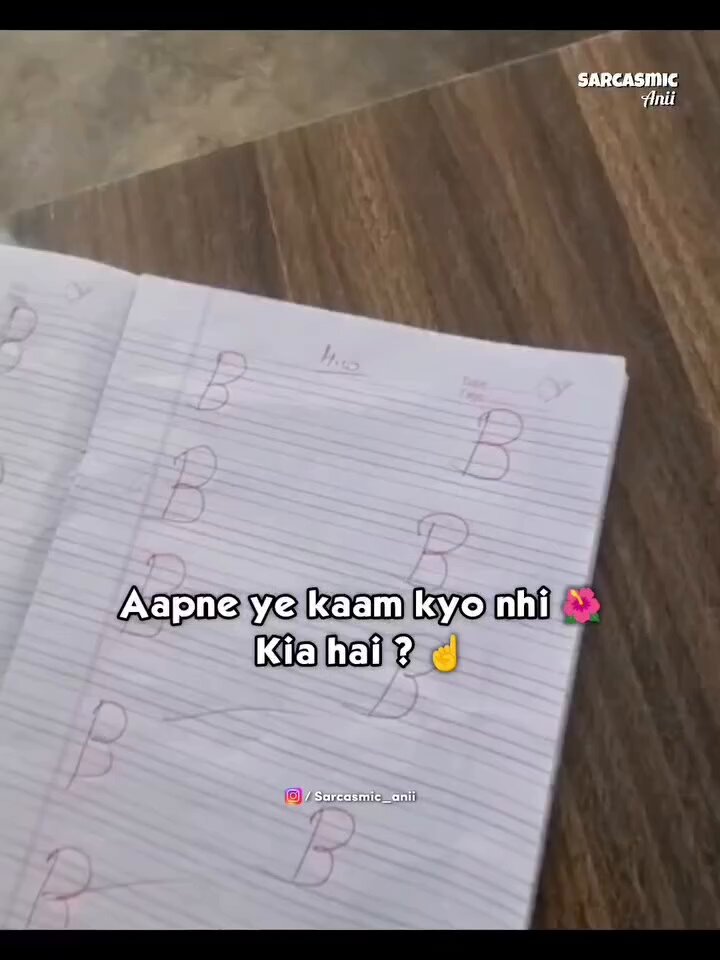 SARCASMIC
Anii
H.W
B
B
B
B
B
B
B
B
B
B
Aapne ye kaam kyo nhi 🌺
Kia hai ? ☝️
/ Sarcasmic_anii